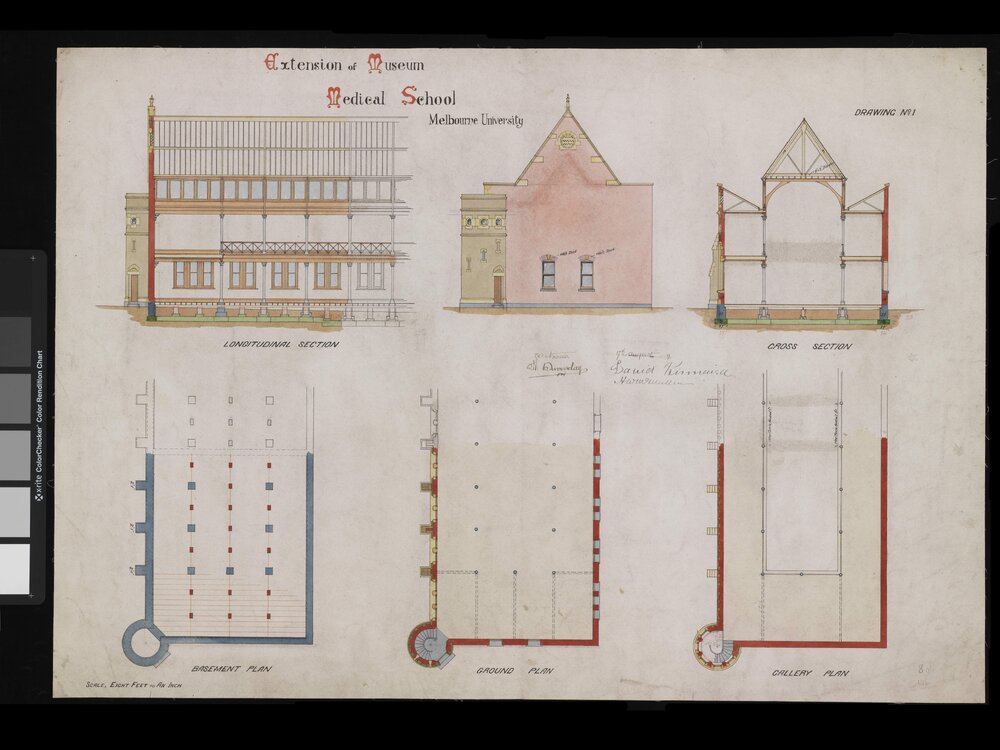 Extension of Museum
Medical School
Melbourne University
DRAWING No 1
LONGITUDINAL SECTION
CROSS SECTION
17th August
David Kinnaird
BASEMENT PLAN
GROUND PLAN
GALLERY PLAN
SCALE, EIGHT FEET TO AN INCH
x-rite ColorChecker Color Rendition Chart